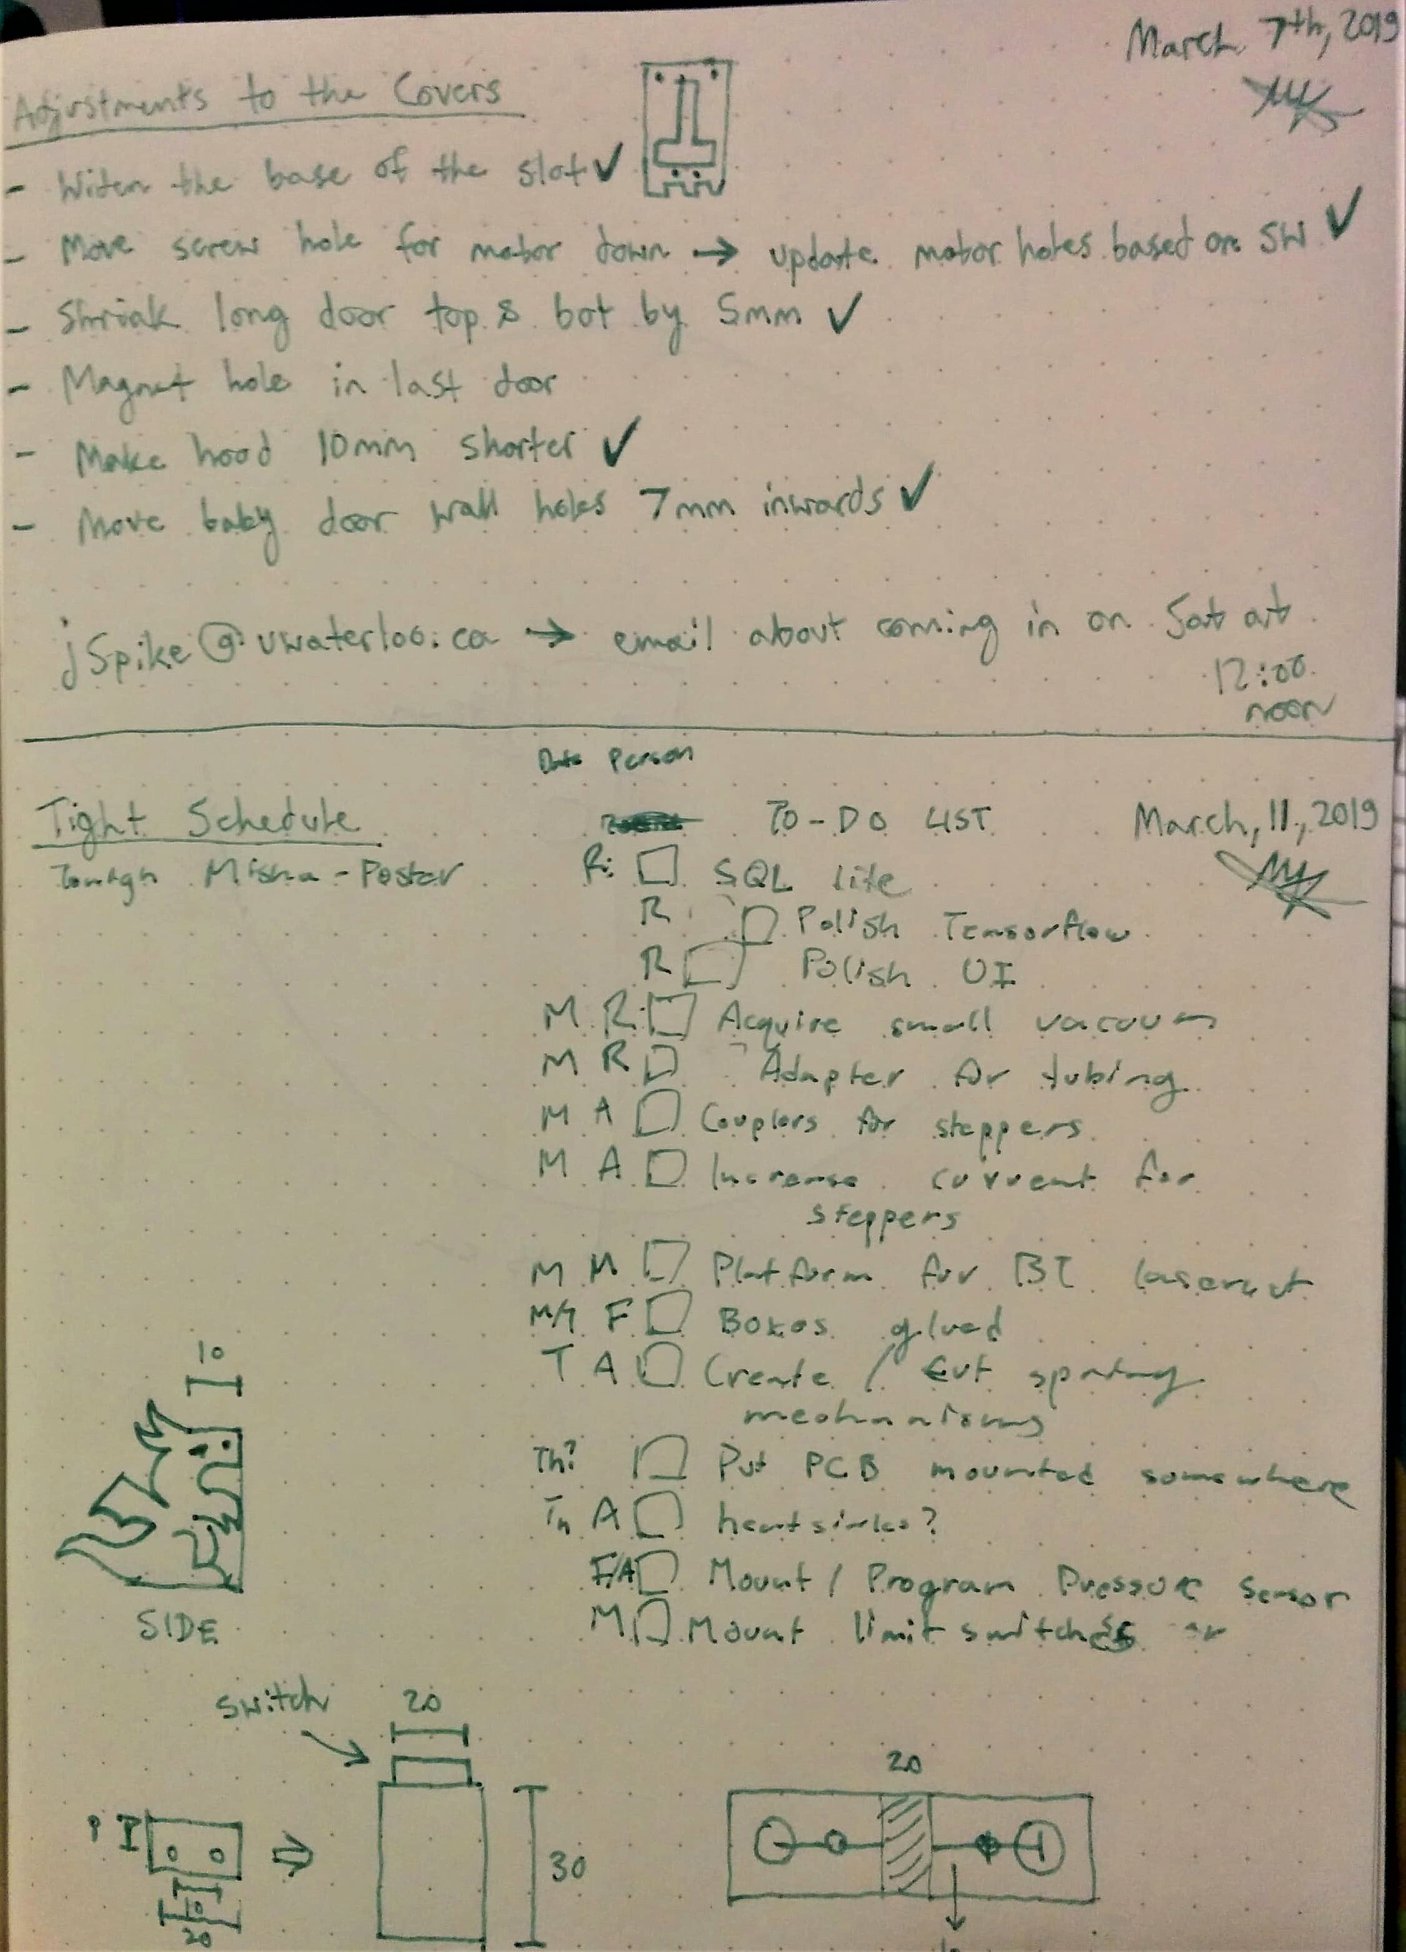 March 7th, 2019
Adjustments to the Covers
- Widen the base of the slot ✓
- Move screw hole for motor down → update motor holes based on SW ✓
- Shrink long door top & bot by 5mm ✓
- Magnet hole in last door
- Make hood 10mm shorter ✓
- Move baby door wall holes 7mm inwards ✓
jSpike@uwaterloo.ca → email about coming in on Sat at
12:00
noon
Date Person
Tight Schedule
TO-DO LIST
March, 11, 2019
Misha - Poster
R: □ SQL lite
R □ Polish Tensorflow
R □ Polish UI
M R: □ Acquire small vacuum
M R □ Adapter for tubing
M A □ Couplers for steppers
M A □ Increase current for
steppers
M M □ Platform for BI lasercut
M/T F □ Boxes glued
T A □ Create / Cut
mechanisms
Th? □ Put PCB mounted somewhere
Th A □ heatsinks?
F/A □ Mount / Program Pressure Sensor
M □ Mount limit switches or
10
SIDE
switch
20
20
30
20